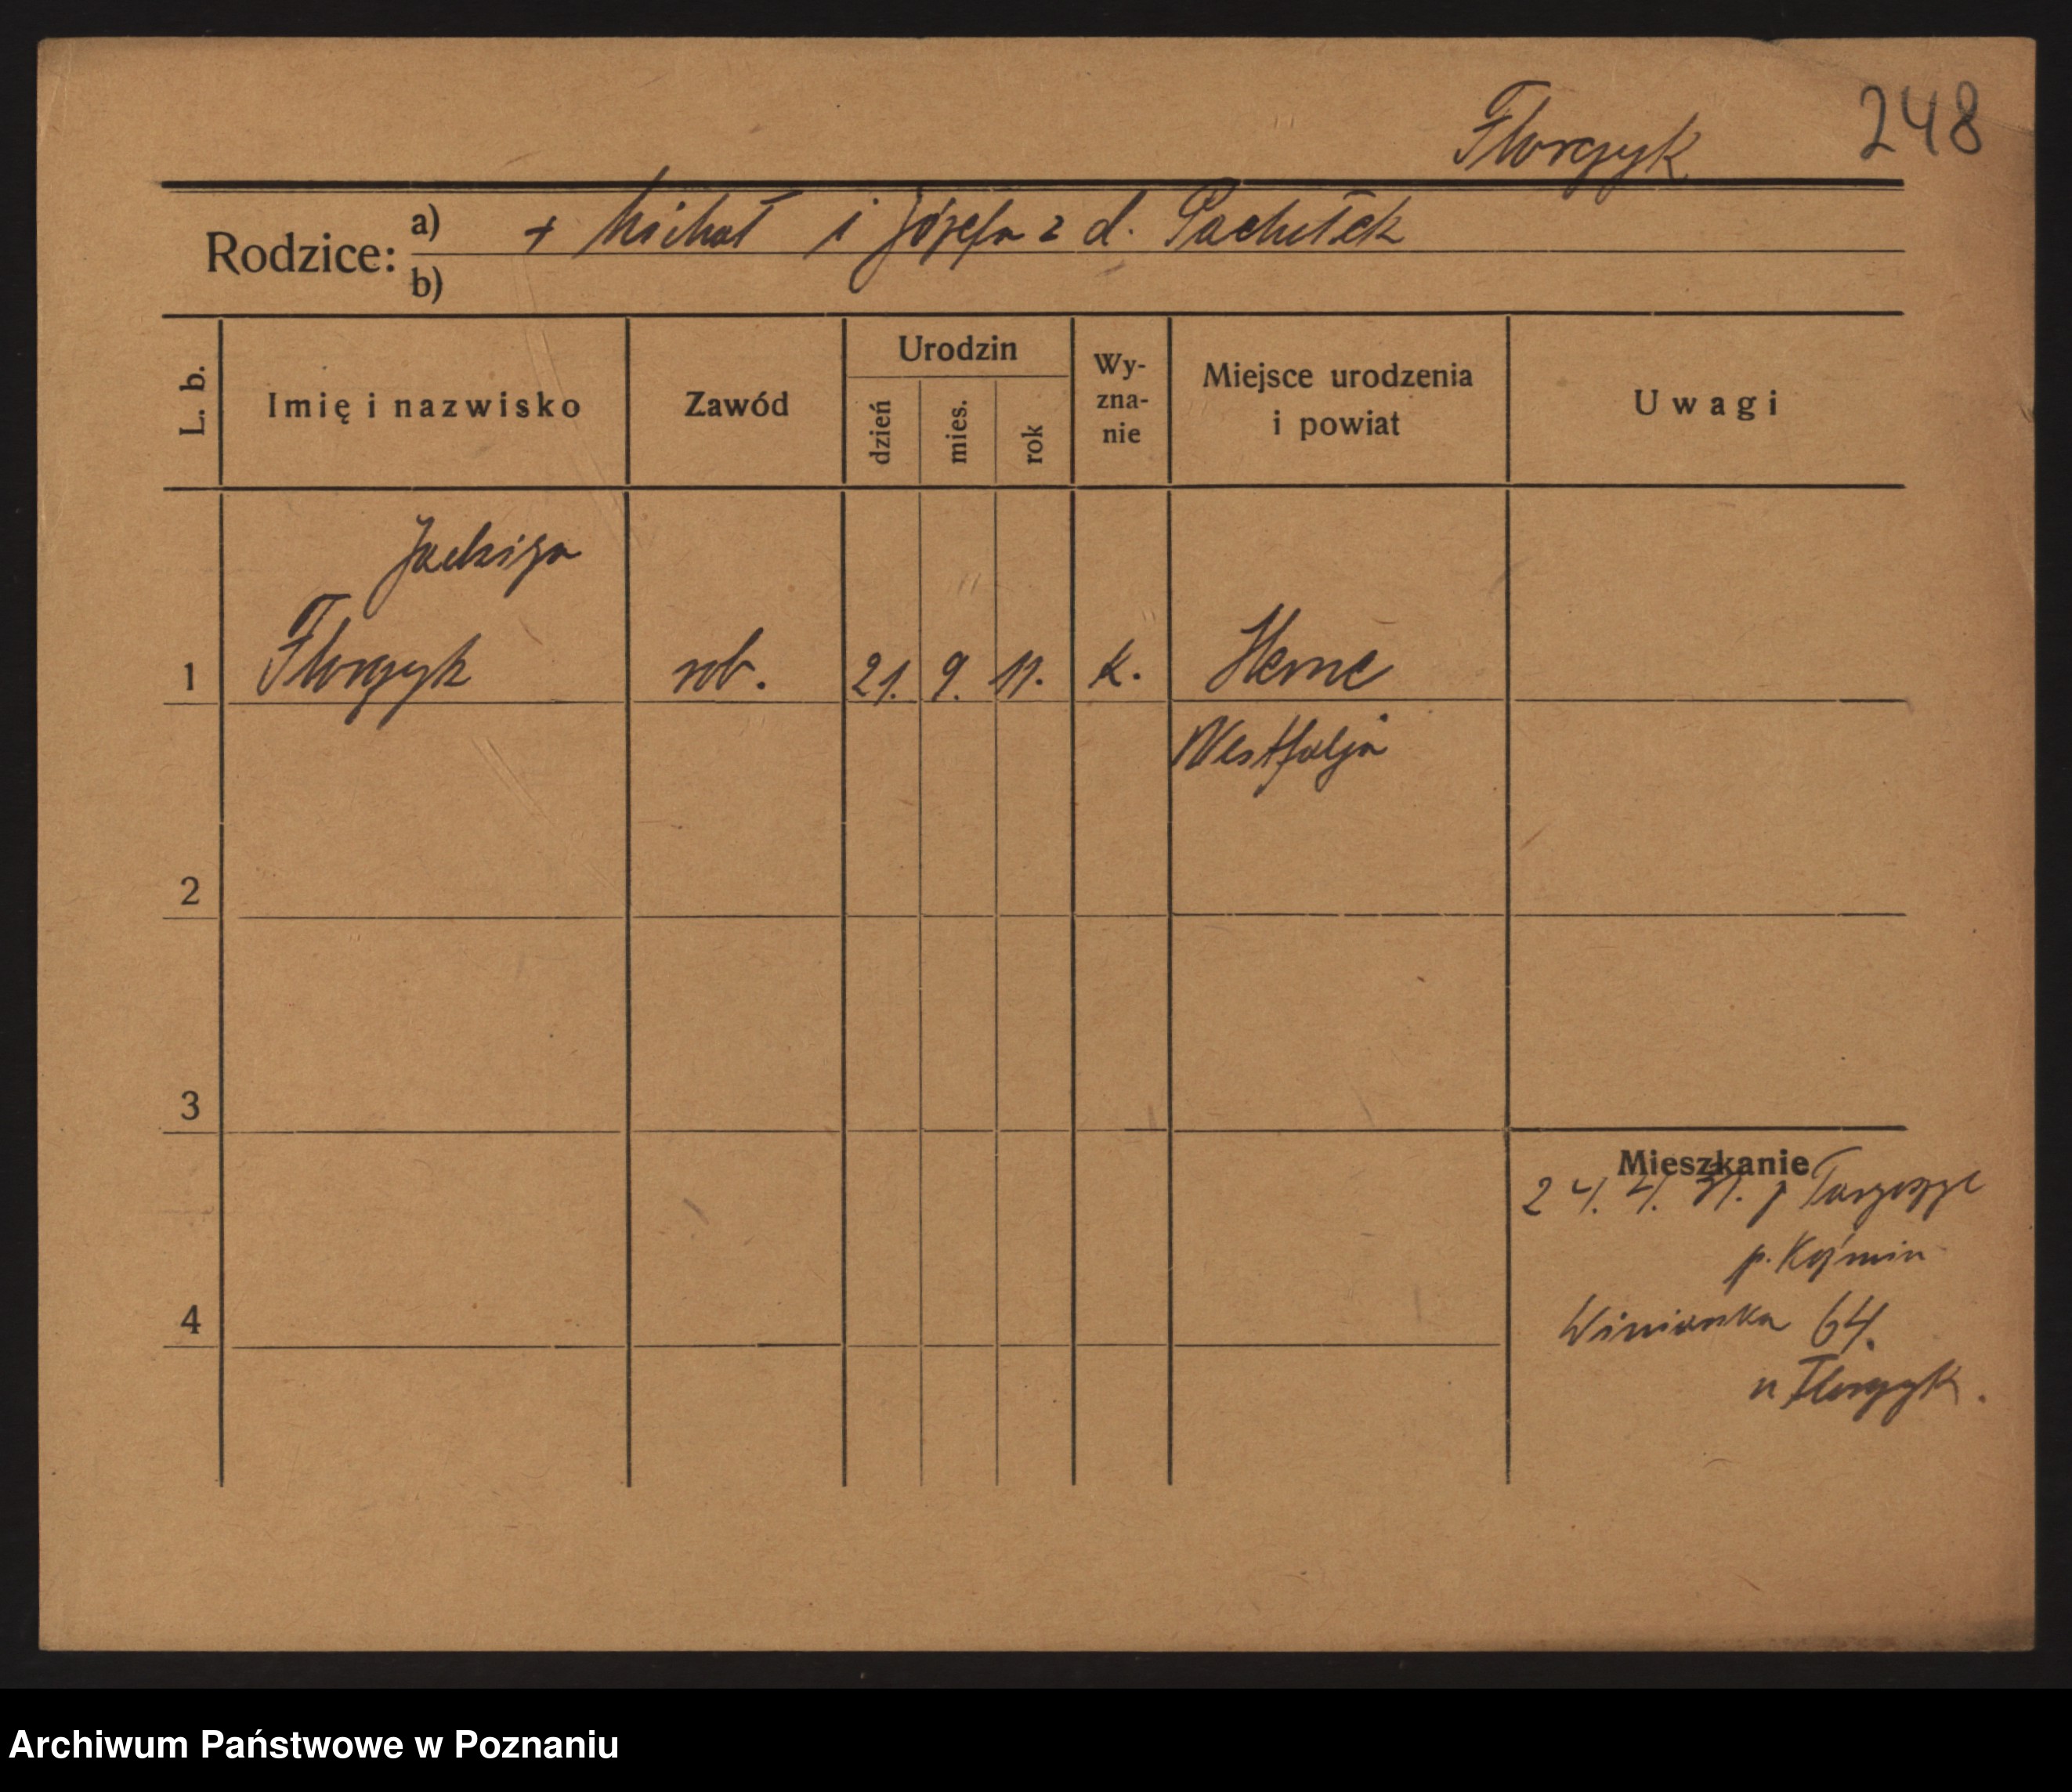 248
Florczyk
Rodzice: a) + Michał i Józefa z d. Pachołek
b)
L. b. Imię i nazwisko Zawód Urodzin dzień mies. rok Wy-zna-nie Miejsce urodzenia i powiat Uwagi
Jadwiga
1 Florczyk rob. 21. 9. 11. k. Herne
Westfalja
2
3
Mieszkanie
24. 4. 31.
p. Koźmin
4 Winiarska 64.
u Florczyk.
Archiwum Państwowe w Poznaniu